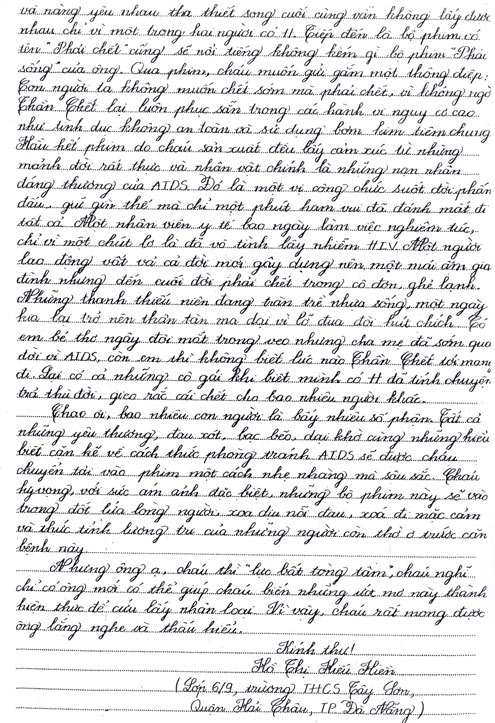 và nàng yêu nhau tha thiết song cuối cùng vẫn không lấy được
nhau chỉ vì một trong hai người có H. Tiếp đến là bộ phim có
tên "Phải chết" cũng sẽ nổi tiếng không kém gì bộ phim "Phải
sống" của ông. Qua phim, cháu muốn gửi gắm một thông điệp:
Con người ta không muốn chết sớm mà phải chết, vì không ngờ
Thần Chết lại luôn phục sẵn trong các hành vi nguy cơ cao
như tình dục không an toàn và sử dụng bơm kim tiêm chung.
Hầu hết phim do cháu sản xuất đều lấy cảm xúc từ những
mảnh đời rất thực và nhân vật chính là những nạn nhân
đáng thương của AIDS. Đó là một vị công chức suốt đời phấn
đấu, giữ gìn thế mà chỉ một phút ham vui đã đánh mất đi
tất cả. Một nhân viên y tế bao ngày làm việc nghiêm túc,
chỉ vì một chút lơ là đã vô tình lây nhiễm HIV. Một người
lao động vất vả cả đời mới gây dựng nên một mái ấm gia
đình nhưng đến cuối đời phải chết trong cô đơn, ghẻ lạnh.
Những thanh thiếu niên đang tràn trề nhựa sống, một ngày
kia lại trở nên thân tàn ma dại vì lỡ đua đòi hút chích. Có
em bé thơ ngây đôi mắt trong veo nhưng cha mẹ đã sớm qua
đời vì AIDS, còn em thì không biết lúc nào Thần Chết tới mang
đi. Lại có cả những cô gái khi biết mình có H đã tính chuyện
trả thù đời, gieo rắc cái chết cho bao nhiêu người khác.
Chao ôi, bao nhiêu con người là bấy nhiêu số phận. Tất cả
những yêu thương, đau xót, bạc bẽo, dại khờ cùng những hiểu
biết cặn kẽ về cách thức phòng tránh AIDS sẽ được cháu
chuyển tải vào phim một cách nhẹ nhàng mà sâu sắc. Cháu
hy vọng, với sức ám ảnh đặc biệt, những bộ phim này sẽ vào
trong đốt lửa lòng người, xoa dịu nỗi đau, xoá đi mặc cảm
và thức tỉnh lương tri của những người còn thờ ơ trước căn
bệnh này.
Nhưng ông ạ, cháu thì "lực bất tòng tâm", cháu nghĩ
chỉ có ông mới có thể giúp cháu biến những ước mơ này thành
hiện thực để cứu lấy nhân loại. Vì vậy, cháu rất mong được
ông lắng nghe và thấu hiểu.
Kính thư!
Hồ Thị Hiếu Hiền
(Lớp 6/9, trường THCS Tây Sơn,
Quận Hải Châu, TP Đà Nẵng)